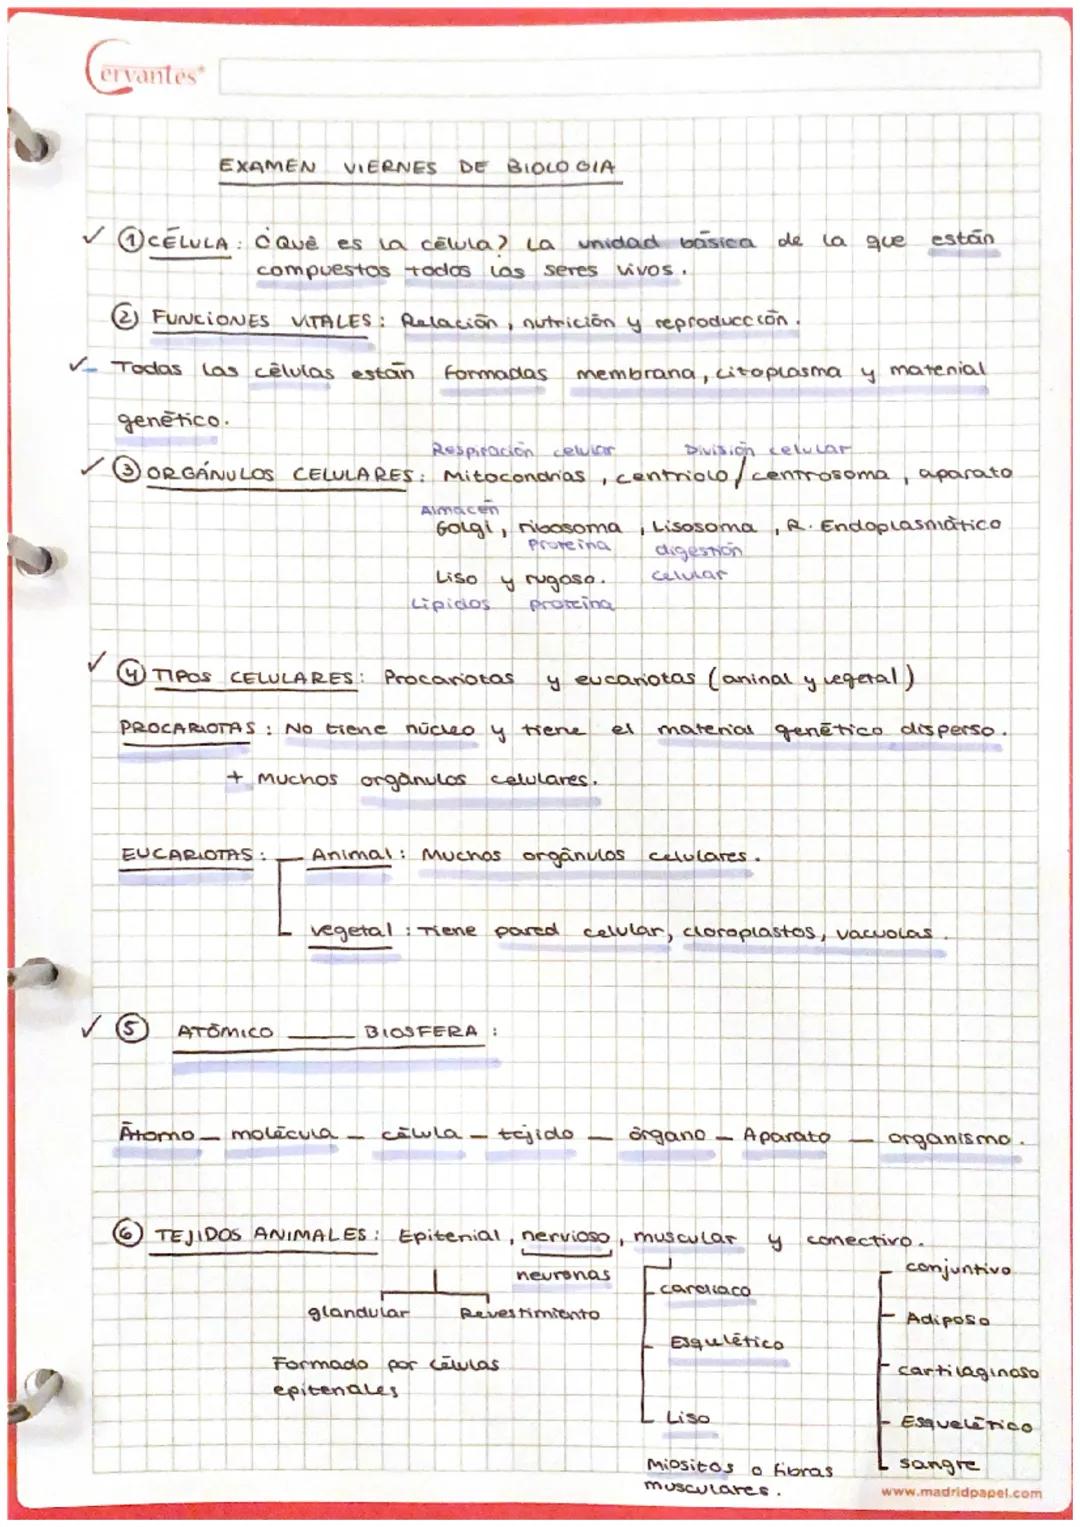 Cervantes
EXAMEN VIERNES DE BIOLOGIA
✓ ① CÉLULA: ¿Qué es la célula? La unidad básica de la que están
compuestos todos los seres vivos.
② FUNCIONES VITALES: Relación, nutrición y reproducción.
✓- Todas las células están formadas membrana, citoplasma y material
genético.
Respiración celular División celular
✓ ③ ORGÁNULOS CELULARES: Mitocondrias, centriolo/centrosoma, aparato
Almacén
Golgi, ribosoma, Lisosoma, R. Endoplasmático
Proteina digestión
Liso y rugoso. celular
Lipidos proteina
✓ ④ TIPOS CELULARES: Procariotas y eucariotas (aninal y vegetal)
PROCARIOTAS: No tiene núcleo y tiene el material genético disperso.
+ Muchos orgánulos celulares.
EUCARIOTAS: Animal: Muchos orgánulos celulares.
vegetal: Tiene pared celular, cloroplastos, vacuolas.
✓ ⑤ ATÓMICO ____ BIOSFERA:
Átomo - molécula - célula - tejido - órgano - Aparato - organismo.
⑥ TEJIDOS ANIMALES: Epitenial, nervioso, muscular y conectivo.
neuronas cardiaco conjuntivo
glandular Revestimiento Adiposo
Esquelético
Formado por células cartilaginoso
epiteniales
Liso Esquelético
Miositos o fibras sangre
musculares.
www.madridpapel.com